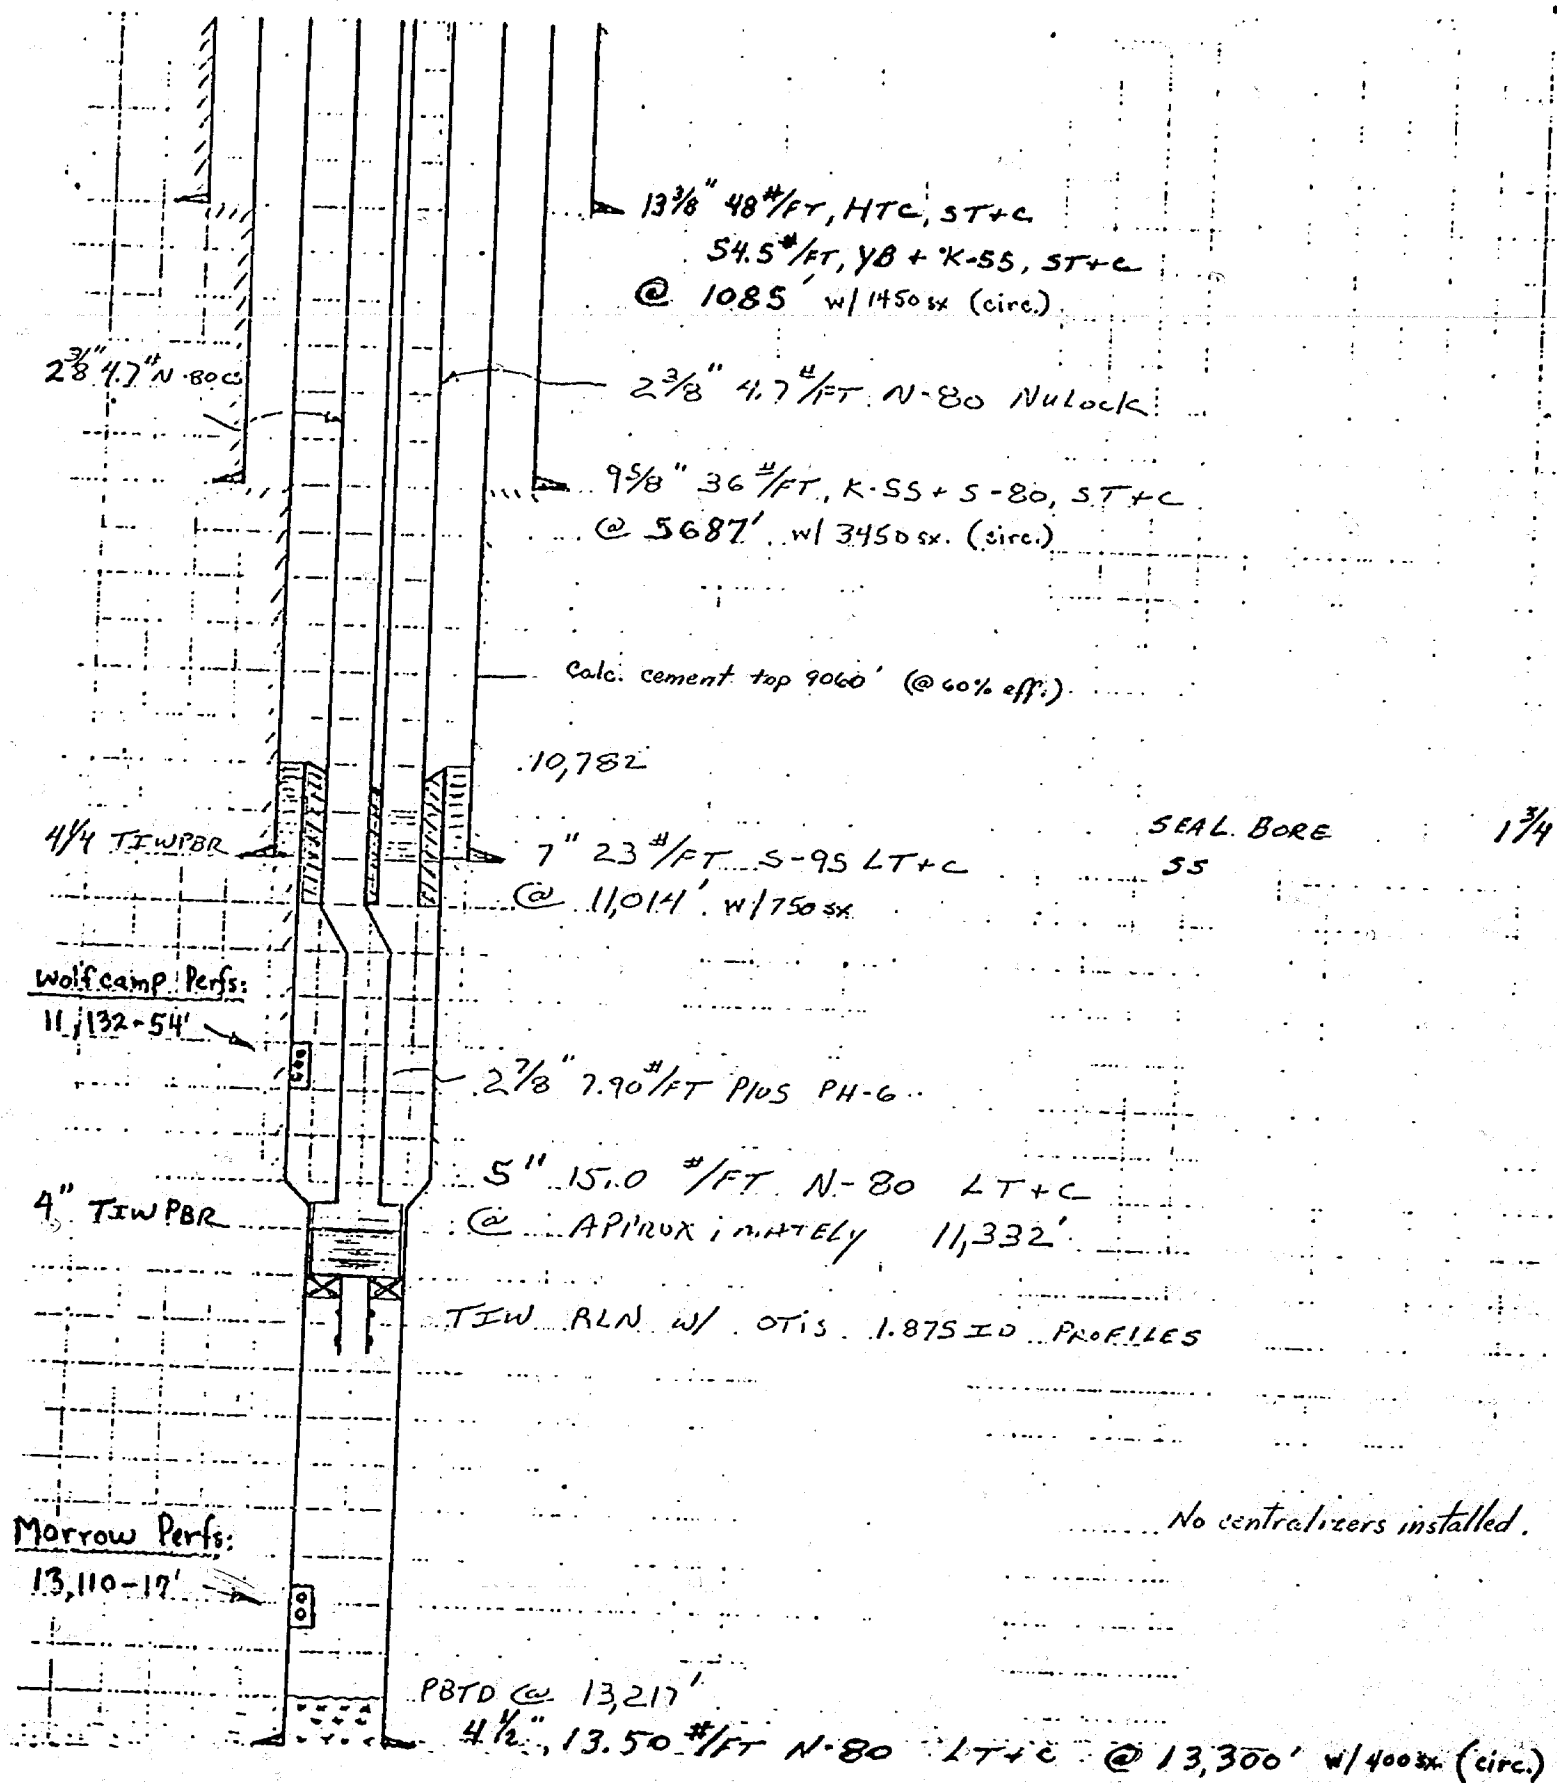 13 3/8" 48 #/FT, HTC, ST+C
54.5 #/FT, YB + K-55, ST+C
@ 1085' w/ 1450 sx (circ.)
2 3/8" 4.7# N-80
2 3/8" 4.7 #/FT N-80 NuLock
9 5/8" 36 #/FT, K-55 + S-80, ST+C
@ 5687' w/ 3450 sx. (circ.)
Calc. cement top 9060' (@ 60% eff.)
10,782
4 1/4 TIW PBR
7" 23 #/FT S-95 LT+C
@ 11,014' w/ 750 sx
SEAL BORE 1 3/4
SS
Wolfcamp Perfs:
11,132-54'
2 7/8" 7.90 #/FT Plus PH-6
5" 15.0 #/FT N-80 LT+C
4" TIW PBR
@ APPROXIMATELY 11,332'
TIW RLN W/ OTIS 1.875 ID PROFILES
No centralizers installed.
Morrow Perfs:
13,110-17'
PBTD @ 13,217'
4 1/2", 13.50 #/FT N-80 LT+C @ 13,300' w/ 400 sx (circ.)